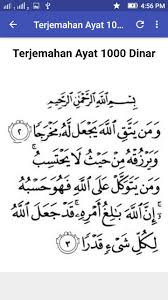 4:56 PM
Terjemahan Ayat 10...
Terjemahan Ayat 1000 Dinar
بِسْمِ اللَّهِ الرَّحْمَٰنِ الرَّحِيمِ
وَمَن يَتَّقِ اللَّهَ يَجْعَل لَّهُ مَخْرَجًا ٢
وَيَرْزُقْهُ مِنْ حَيْثُ لَا يَحْتَسِبُ ۚ
وَمَن يَتَوَكَّلْ عَلَى اللَّهِ فَهُوَ حَسْبُهُ
ۚ إِنَّ اللَّهَ بَالِغُ أَمْرِهِ ۚ قَدْ جَعَلَ اللَّهُ
لِكُلِّ شَيْءٍ قَدْرًا ٣